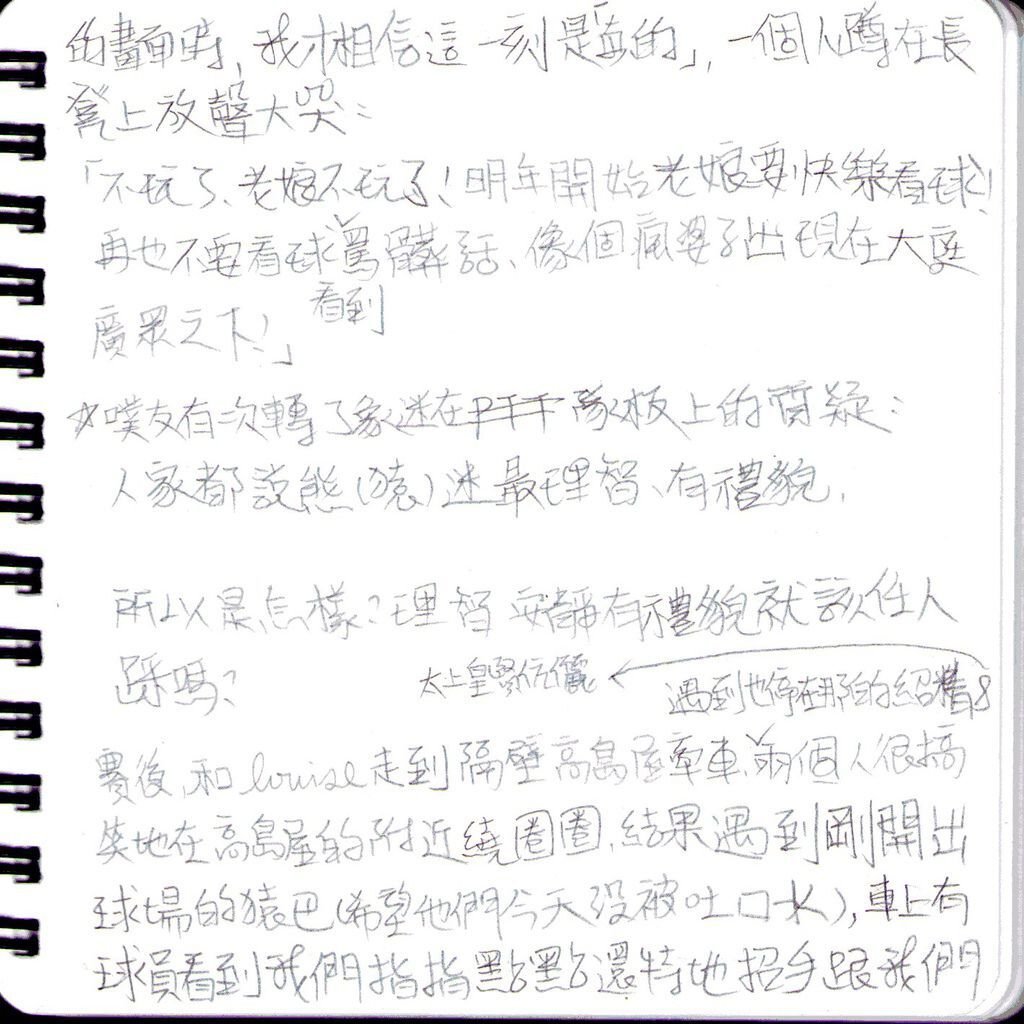 的畫面時，我才相信這一刻是「真的」，一個人蹲在長
凳上放聲大哭：
「不玩了、老娘不玩了！明年開始老娘要快樂看球！
再也不要看球罵髒話、像個瘋婆子出現在大庭
看到
廣眾之下！」
☆噗友有次轉了象迷在PTT隊板上的質疑：
人家都說熊(猿)迷最理智、有禮貌，
所以是怎樣？理智安靜有禮貌就該任人
踩嗎？
太上皇賢伉儷
遇到也停在那的
賽後，和louise走到隔壁高島屋牽車，兩個人很搞
笑地在高島屋的附近繞圈圈，結果遇到剛開出
球場的猿巴(希望他們今天沒被吐口水)，車上有
球員看到我們指指點點還特地招手跟我們